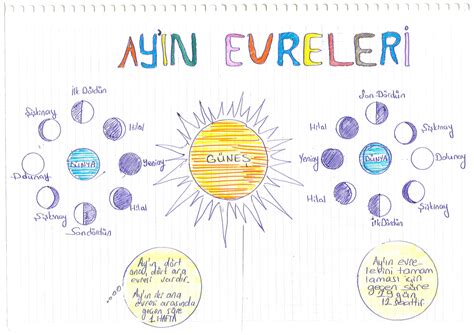 AY'IN EVRELERİ
İlk Dördün
Şişkinay
Hilal
DÜNYA
Yeniay
Dolunay
Şişkinay
Hilal
Sondördün
GÜNEŞ
Son Dördün
Hilal
Şişkinay
Yeniay
DÜNYA
Dolunay
Hilal
Şişkinay
İlk Dördün
Ay'ın dört
ana, dört ara
evresi vardır.
Ay'ın iki ana
evresi arasında
geçen süre
1 HAFTA
Ay'ın evre-
lerini tamam
laması için
geçen süre
29 gün
12 saattir